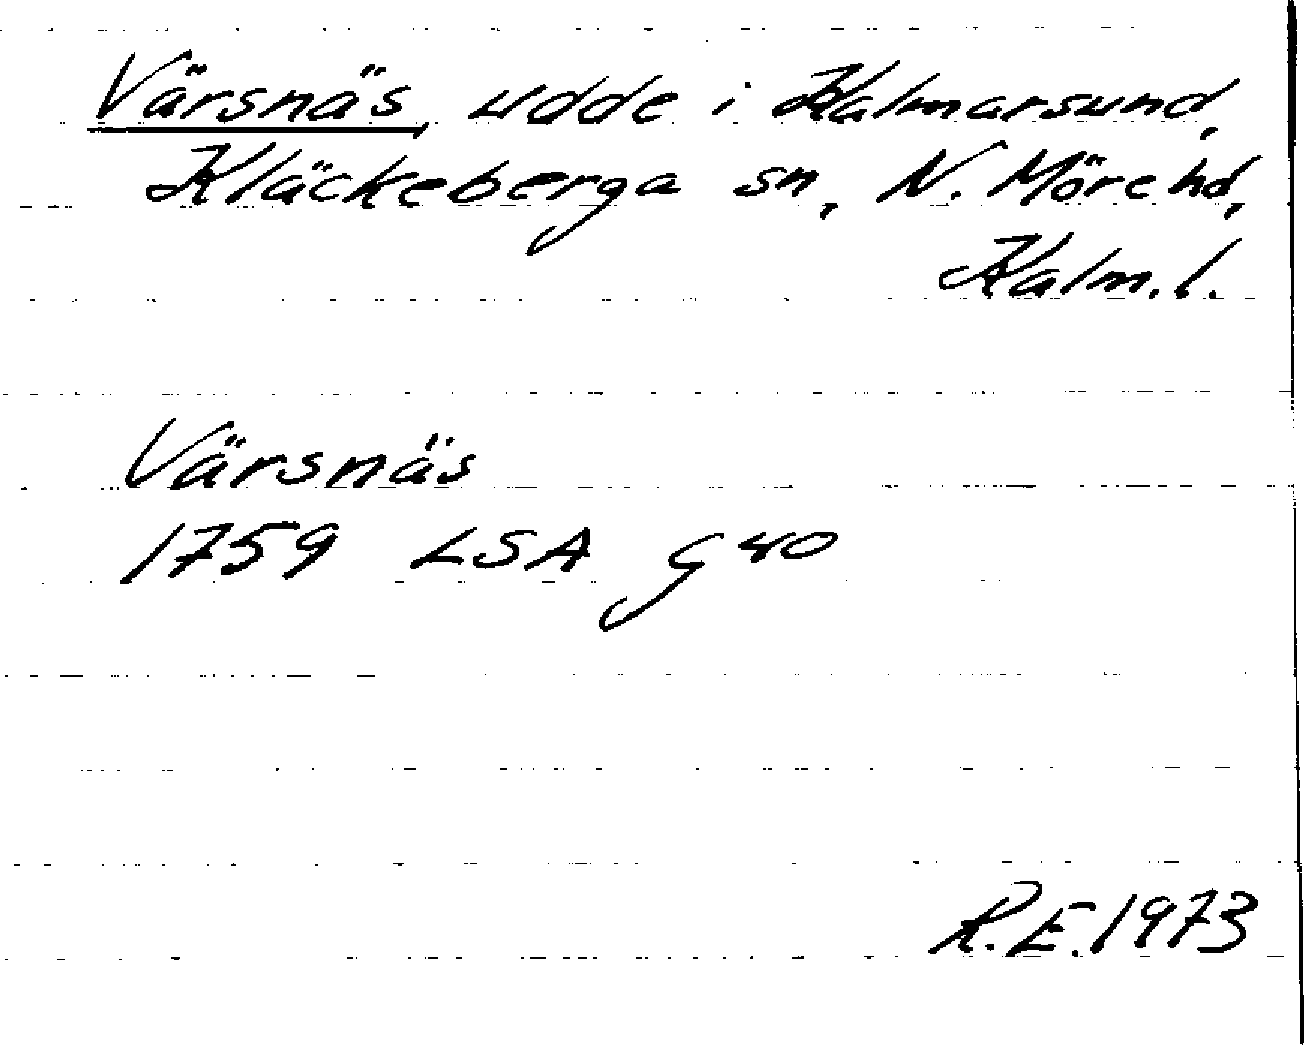 Värsnäs, udde i Kalmarsund,
Kläckeberga sn, N. Möre hd,
Kalm. l.
Värsnäs
1759 LSA G 40
R.E. 1973